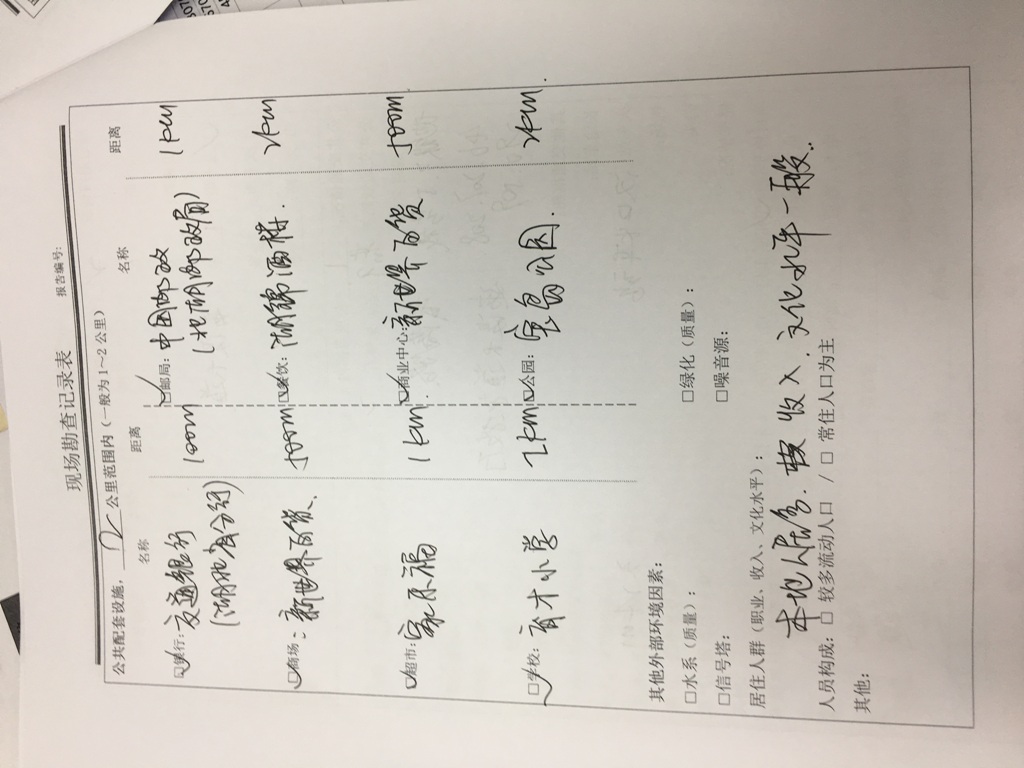 现场勘查记录表
报告编号:
公共配套设施, 2 公里范围内(一般为1~2公里)
名称 距离 名称 距离
☑银行: 交通银行 100m ☑邮局: 中国邮政 1km
(湖北省分行) (北湖邮政局)
☑商场: 新世界百货、 500m ☑餐饮: 湖锦酒楼. 2km
☑超市: 家乐福 1km ☑商业中心: 新世界百货 500m
☑学校: 育才小学 2km ☑公园: 宝岛公园. 2km.
其他外部环境因素:
□水系(质量): □绿化(质量):
□信号塔: □噪音源:
居住人群(职业、收入、文化水平):
本地人居多. 收入.文化水平一般.
人员构成: □ 较多流动人口 / □ 常住人口为主
其他: